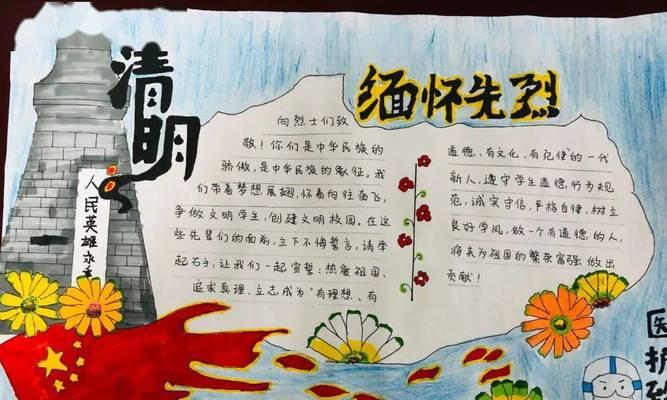 清明
缅怀先烈
人民英雄永垂
向烈士们致
敬！你们是中华民族的
骄傲，是中华民族的象征。我
们带着梦想展翅，怀着向往奋飞，
争做文明学生，创建文明校园。在这
些先辈们的面前，立下不悔誓言，请举
起右手，让我们一起宣誓：热爱祖国、
追求真理，立志成为“有理想、有
道德、有文化、有纪律”的一代
新人，遵守学生道德，行为规
范，诚实守信，严格自律，树立
良好学风，做一个有道德的人，
将来为祖国的繁荣富强做出
贡献！
医护致